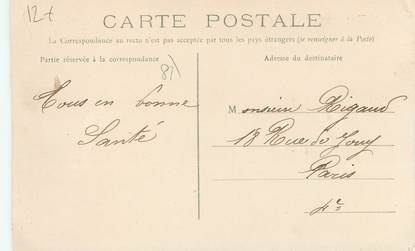 12+
CARTE POSTALE
La Correspondance au recto n'est pas acceptée par tous les pays étrangers (se renseigner à la Poste)
Partie réservée à la correspondance
Adresse du destinataire
Tous en bonne
Santé
Monsieur Rigaud
18 Rue de Jouy
Paris
4e